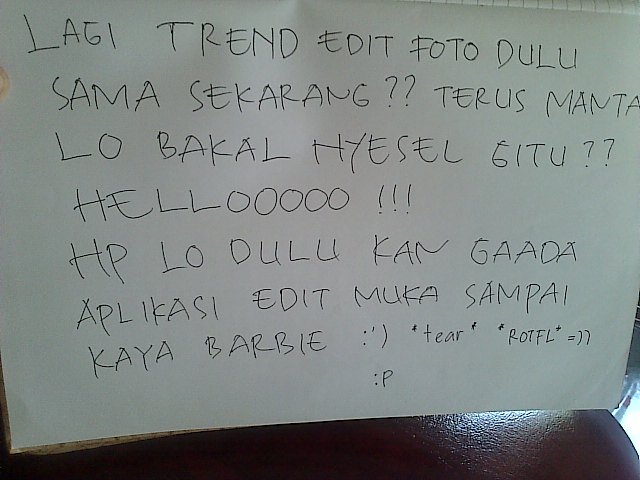 LAGI TREND EDIT FOTO DULU
SAMA SEKARANG?? TERUS MANTA
LO BAKAL NYESEL GITU??
HELLOOOOO !!!
HP LO DULU KAN GAADA
APLIKASI EDIT MUKA SAMPAI
KAYA BARBIE :') *tear* *ROTFL* =))
:P